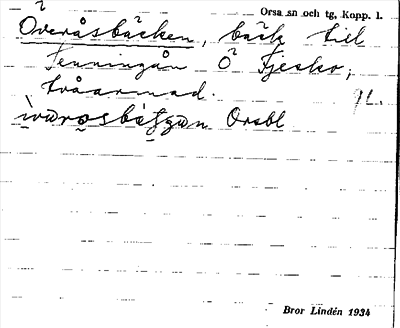 Orsa sn och tg, Kopp. l.
Överåsbäcken, bäck till
Tenningån Ö Fjesko,
tvåarmad. 9L.
Orsbl
Bror Lindén 1934